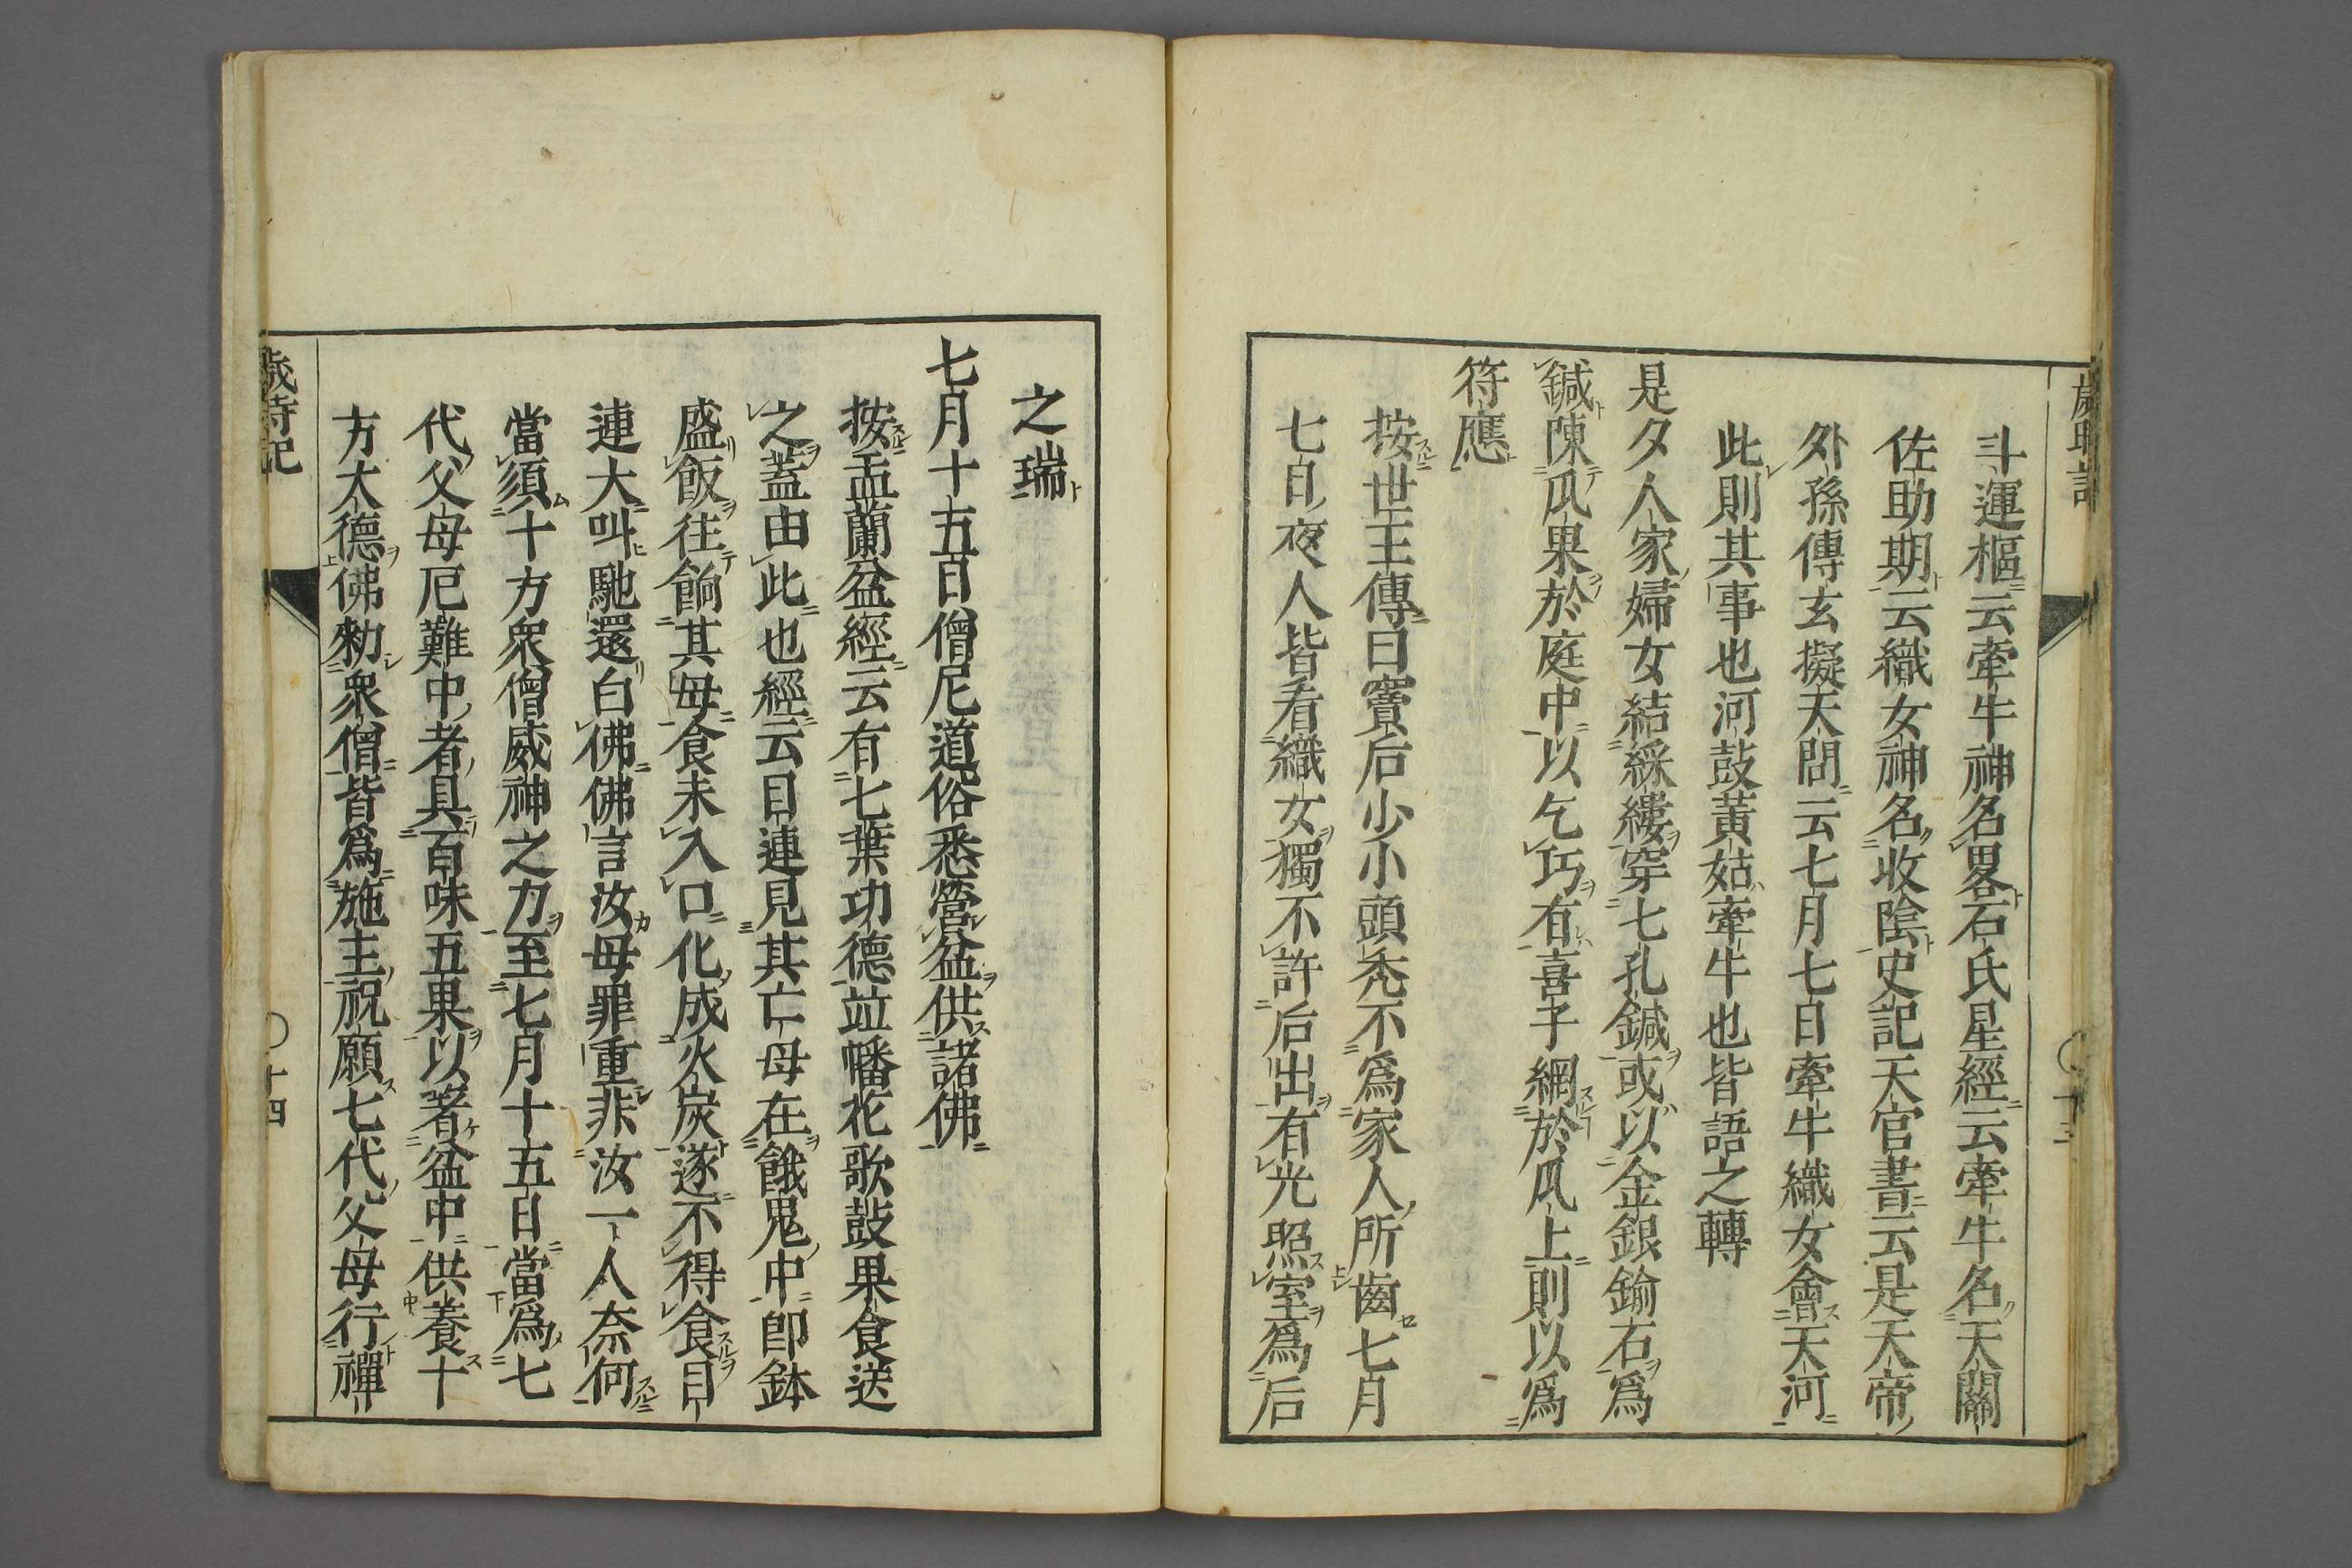 歲時記
十三
斗運樞云牽牛神名畧石氏星經云牽牛名天關
佐助期云織女神名收陰史記天官書云是天帝
外孫傳玄擬天問云七月七日牽牛織女會天河
此則其事也河鼓黃姑牽牛也皆語之轉
是夕人家婦女結綵縷穿七孔鍼或以金銀鍮石爲
鍼陳瓜果於庭中以乞巧有喜子網於瓜上則以爲
符應
按世王傳曰竇后少小頭禿不爲家人所齒七月
七日夜人皆看織女獨不許后出有光照室爲后
之瑞
七月十五日僧尼道俗悉營盆供諸佛
按盂蘭盆經云有七葉功德竝幡花歌鼓果食送
之蓋由此也經云目連見其亡母在餓鬼中卽鉢
盛飯往餉其母食未入口化成火炭遂不得食目
連大叫馳還白佛佛言汝母罪重非汝一人奈何
當須十方衆僧威神之力至七月十五日當爲七
代父母厄難中者具百味五果以著盆中供養十
方大德佛勑衆僧皆爲施主祝願七代父母行禪
歲時記
十四